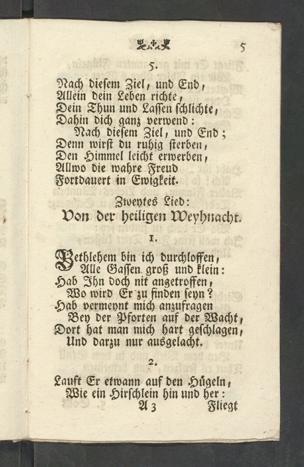 5
5.
Nach diesem Ziel, und End,
Allein dein Leben richte,
Dein Thun und Lassen schlichte,
Dahin dich ganz verwend:
Nach diesem Ziel, und End;
Denn wirst du ruhig sterben,
Den Himmel leicht erwerben,
Allwo die wahre Freud
Fortdauert in Ewigkeit.
Zweytes Lied:
Von der heiligen Weyhnacht.
1.
Bethlehem bin ich durchloffen,
Alle Gassen groß und klein:
Hab Ihn doch nit angetroffen,
Wo wird Er zu finden seyn?
Hab vermeynt mich anzufragen
Bey der Pforten auf der Wacht,
Dort hat man mich hart geschlagen,
Und darzu nur ausgelacht.
2.
Lauft Er etwann auf den Hügeln,
Wie ein Hirschlein hin und her:
A 3 Fliegt